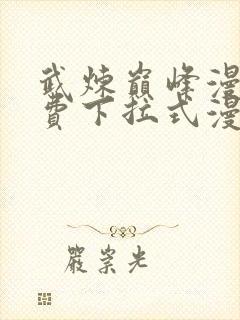 武炼巅峰漫
费下拉式漫
严崇光